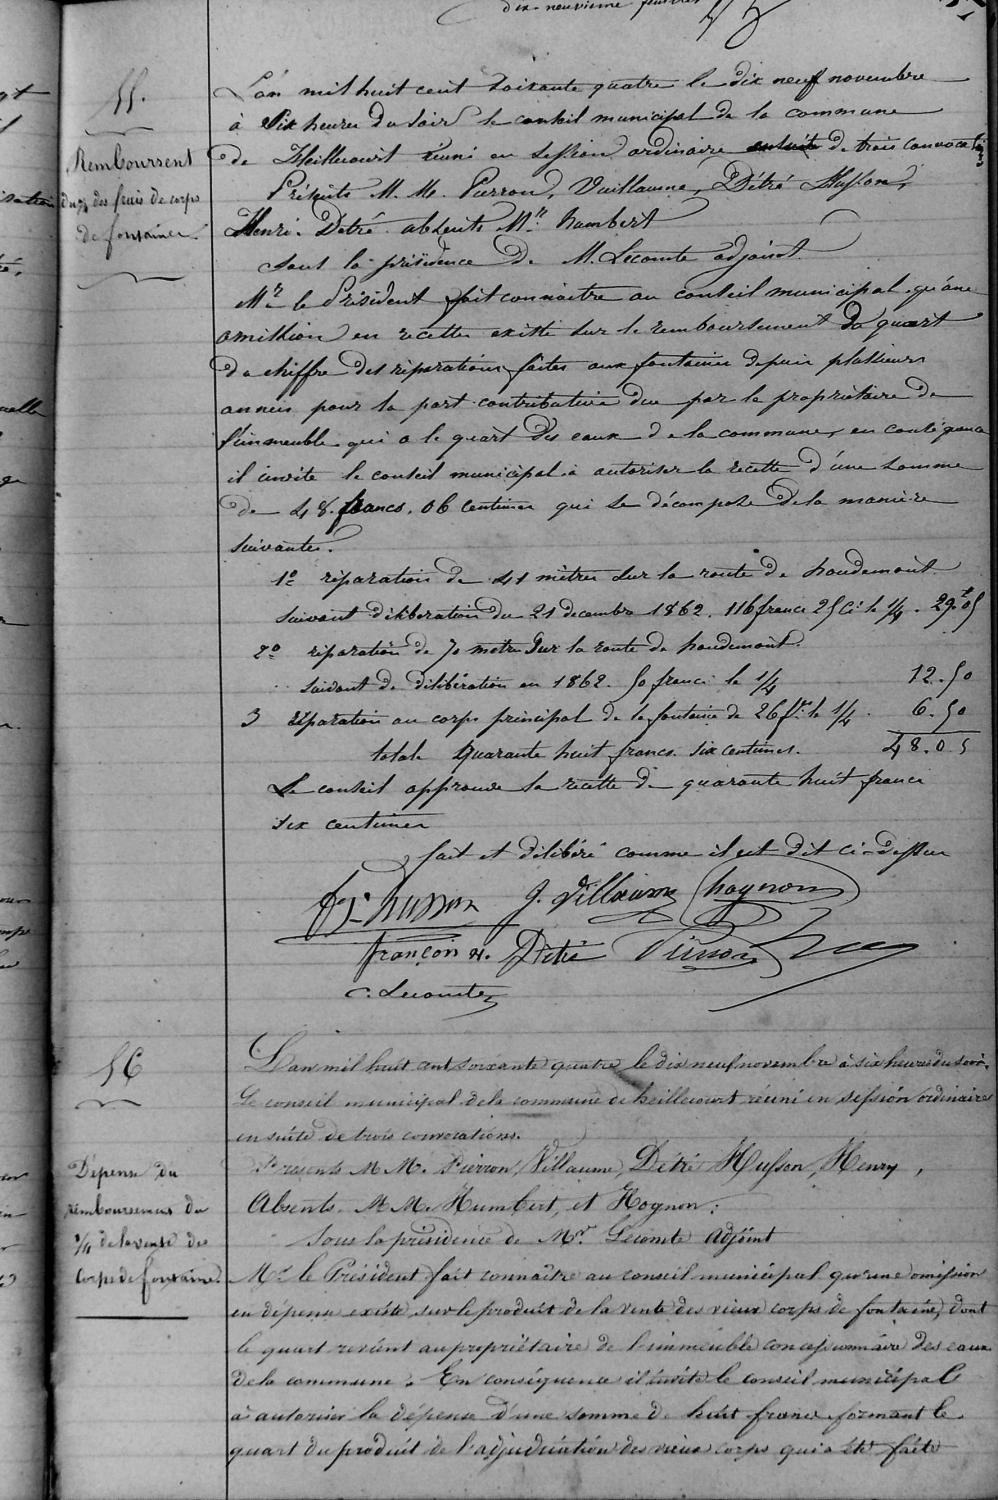 dix-neuvième feuillet
55.
Remboursent
du ¼ des frais de corps
de fontaines.
L'an mil huit cent soixante quatre le dix neuf novembre
à Six heures du soir le conseil municipal de la commune
de Heillecourt réuni en session ordinaire ensuite de trois convocations
Présents M.M. Pierron, Vuillaume, Détré Husson,
Henri. Détré absents Mr. humbert
sous la présidence de M. Lecomte adjoint
Mr. le Président fait connaitre au conseil municipal qu'une
omission en recettes existe sur le remboursement du quart
du chiffre des réparations faites aux fontaines depuis plusieurs
années pour la part contributive due par le propriétaire de
l'immeuble qui a le quart des eaux de la commune, en conséquence
il invite le conseil municipal à autoriser la recette d'une somme
de 48. francs. 06 centimes qui se décompose de la manière
suivante.
1o réparation de 41 mètres sur la route de houdemont
suivant délibération du 21 decembre 1862. 116 francs 25 c: le ¼. 29f.05
2o réparation de 70 mètres sur la route de houdemont.
suivant de délibération en 1862. 50 francs le ¼ 12.50
3 réparation au corps principal de la fontaine de 26 frs. le ¼. 6.50
total quarante huit francs six centimes. 48.05
Le conseil approuve la recette de quarante huit francs
six centimes
fait et délibéré comme il est dit ci-dessus
husson J. Villaume hognon
françois N. Détré Pierron
C. Lecomte
56
Dépense du
remboursement du
¼ de la vente des
corps de fontaine.
L'an mil huit cent soixante quatre le dix neuf novembre à six heures du soir.
Le conseil municipal de la commune de heillecourt réuni en session ordinaire
en suite de trois convocations.
Présents M M. Pierron, Villaume, Détré Husson, Henry,
Absents M M. Humbert, et Hognon.
Sous la présidence de Mr. Lecomte Adjoint
Mr. le Président fait connaître au conseil municipal qu'une omission
en dépense existe sur le produit de la vente des vieux corps de fontaine, dont
le quart revient au propriétaire de l'immeuble concessionnaire des eaux
de la commune. En conséquence il invite le conseil municipal
à autoriser la dépense d'une somme de huit francs formant le
quart du produit de l'adjudication des vieux corps qui a été faite